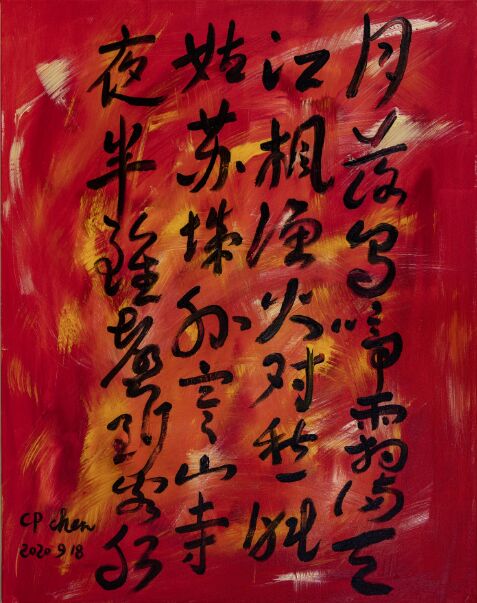 月落乌啼霜满天
江枫渔火对愁眠
姑苏城外寒山寺
夜半鐘聲到客船
CP chen
2020 9 18